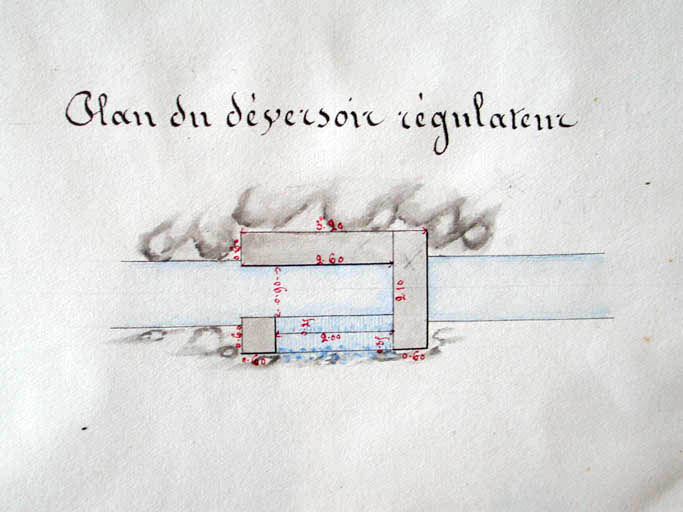 Plan du déversoir régulateur
3.20
0.60
2.60
0.90
2.10
0.60
0.25
2.00
0.35
0.60
0.60